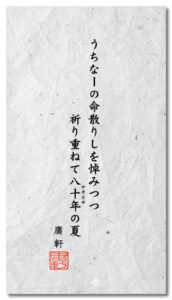 うちなーの命散りしを悼みつつ
祈り重ねて八十年の夏
庸軒